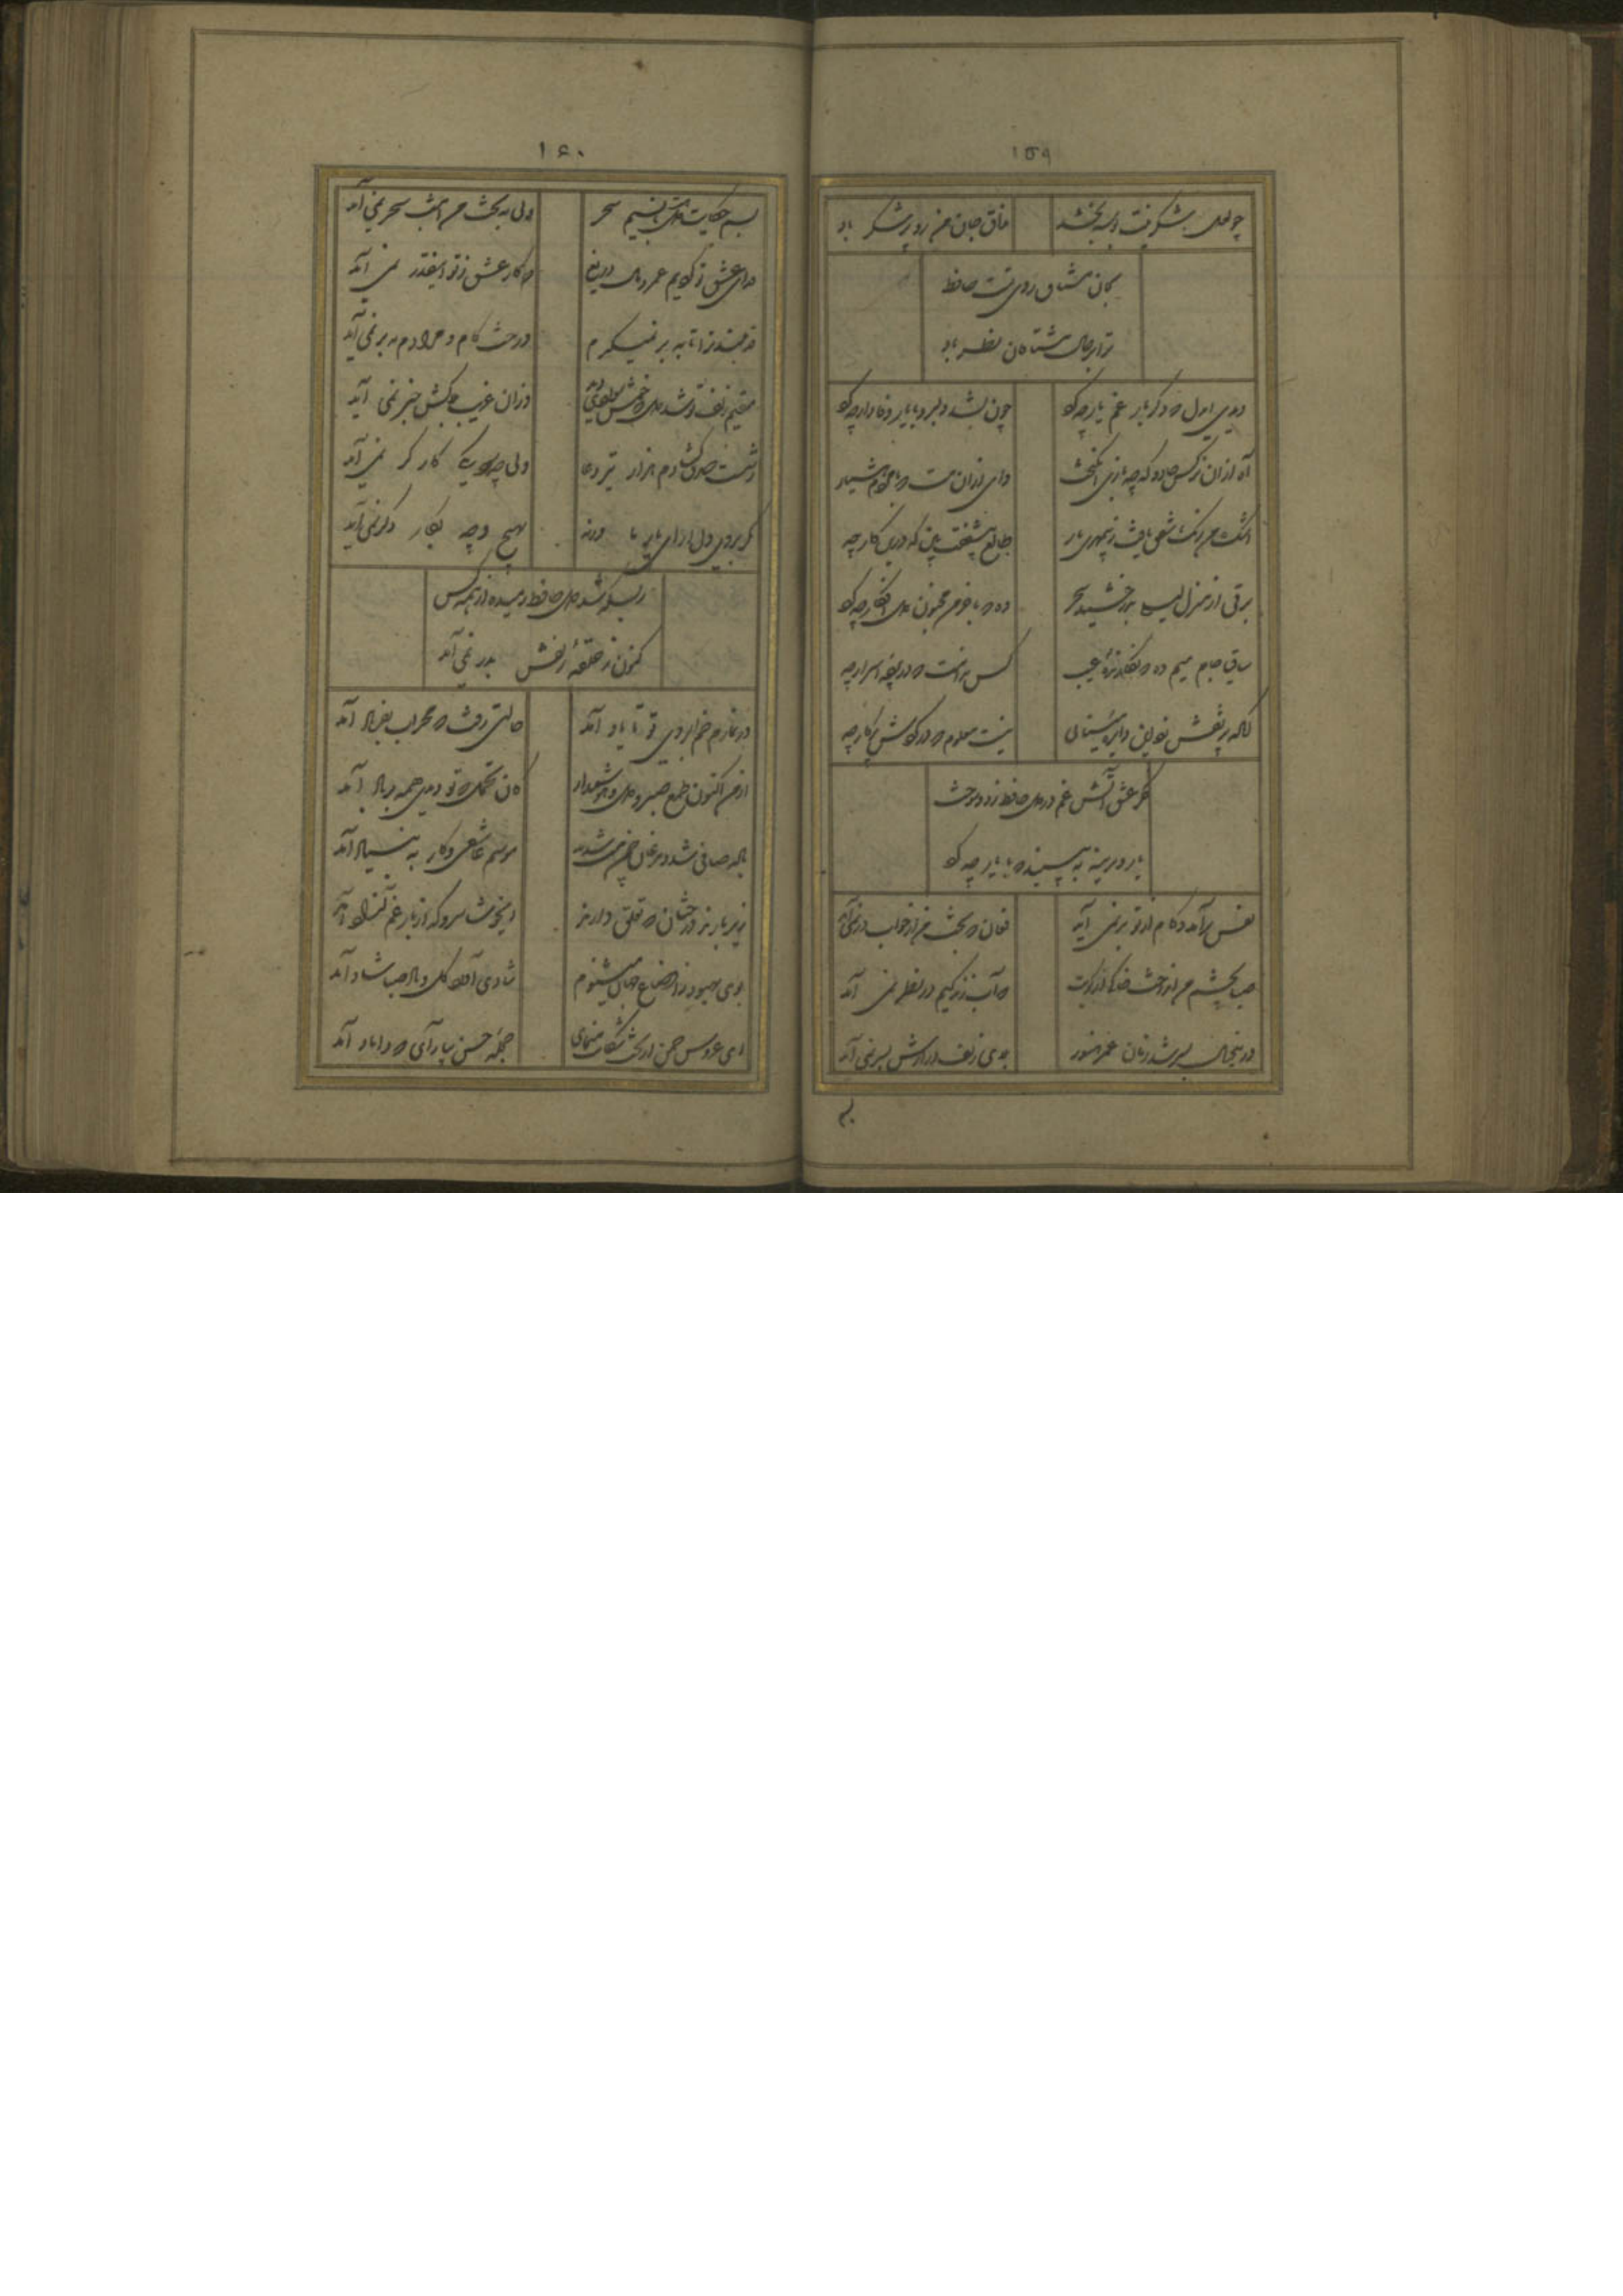 ۱۵۹
چو لعل شکرینت بوسه بخشد
مذاق جان من زو پرشکر باد
بجان مشتاق روی تست حافظ
ترا بر حال مشتاقان نظر باد
دیدی ای دل که دگر بار غم یار چه کرد
چون بشد دلبر و با یار وفادار چه کرد
آه ازان نرکس جادو که چه بازی انکیخت
وای ازان مست که با مردم هشیار
اشک من رنک شفق یافت ز بیمهری یار
طالع بیشفقت بین که درین کار چه
برقی از منزل لیلی بدرخشید سحر
وه که با خرمن مجنون دل افکار چه کرد
ساقی جام میم ده که نکارنده غیب
کس ندانست که در پرده اسرار چه
آنکه پر نقش زد این دایره مینائی
نیست معلوم که در کردش پرکار چه
فکر عشق آتش غم در دل حافظ زد و سوخت
یار دیرینه ببینید که با یار چه کرد
نفس برآمد و کام از تو بر نمی آید
فغان که بخت من از خواب در نمی آید
صبا بچشم من انداخت خاکی از کویت
که آب زندکیم در نظر نمی آید
درین خیال بسر شد زمان عمر هنوز
بلای زلف درازش بسر نمی آید
بسم
۱۶۰
بسم حکایت دل هست با نسیم سحر
ولی به بخت من امشب سحر نمی آید
فدای عشق تو کردیم عمر و مال دریغ
که کار عشق ز تو اینقدر نمی آید
قد بلند ترا تا به بر نمیکیرم
درخت کام و مرادم به بر نمی آید
مقیم زلف تو شد دل که خوش سوادی دید
وزان غریب بلاکش خبر نمی آید
ز شست صدق کشادم هزار تیر دعا
ولی چه سود یکی کارکر نمی آید
مکر بروی دلارای یار ما ورنه
بهیچ وجه دکر کار بر نمی آید
ز بسکه شد دل حافظ رمیده از همه کس
کنون ز حلقه زلفش بدر نمی آید
در نمازم خم ابروی تو با یاد آمد
حالتی رفت که محراب بفریاد آمد
از من اکنون طمع صبر و دل و هوش مدار
کان تحمل که تو دیدی همه بر باد آمد
باده صافی شد و مرغان چمن مست شدند
موسم عاشقی و کار به بنیاد آمد
زیر بارند درختان که تعلق دارند
ای خوشا سرو که از بار غم آزاد آمد
بوی بهبود ز اوضاع جهان میشنوم
شادی آورد کل و باد صبا شاد آمد
ای عروس چمن از بخت شکایت منمای
حجله حسن بیارآی که داماد آمد